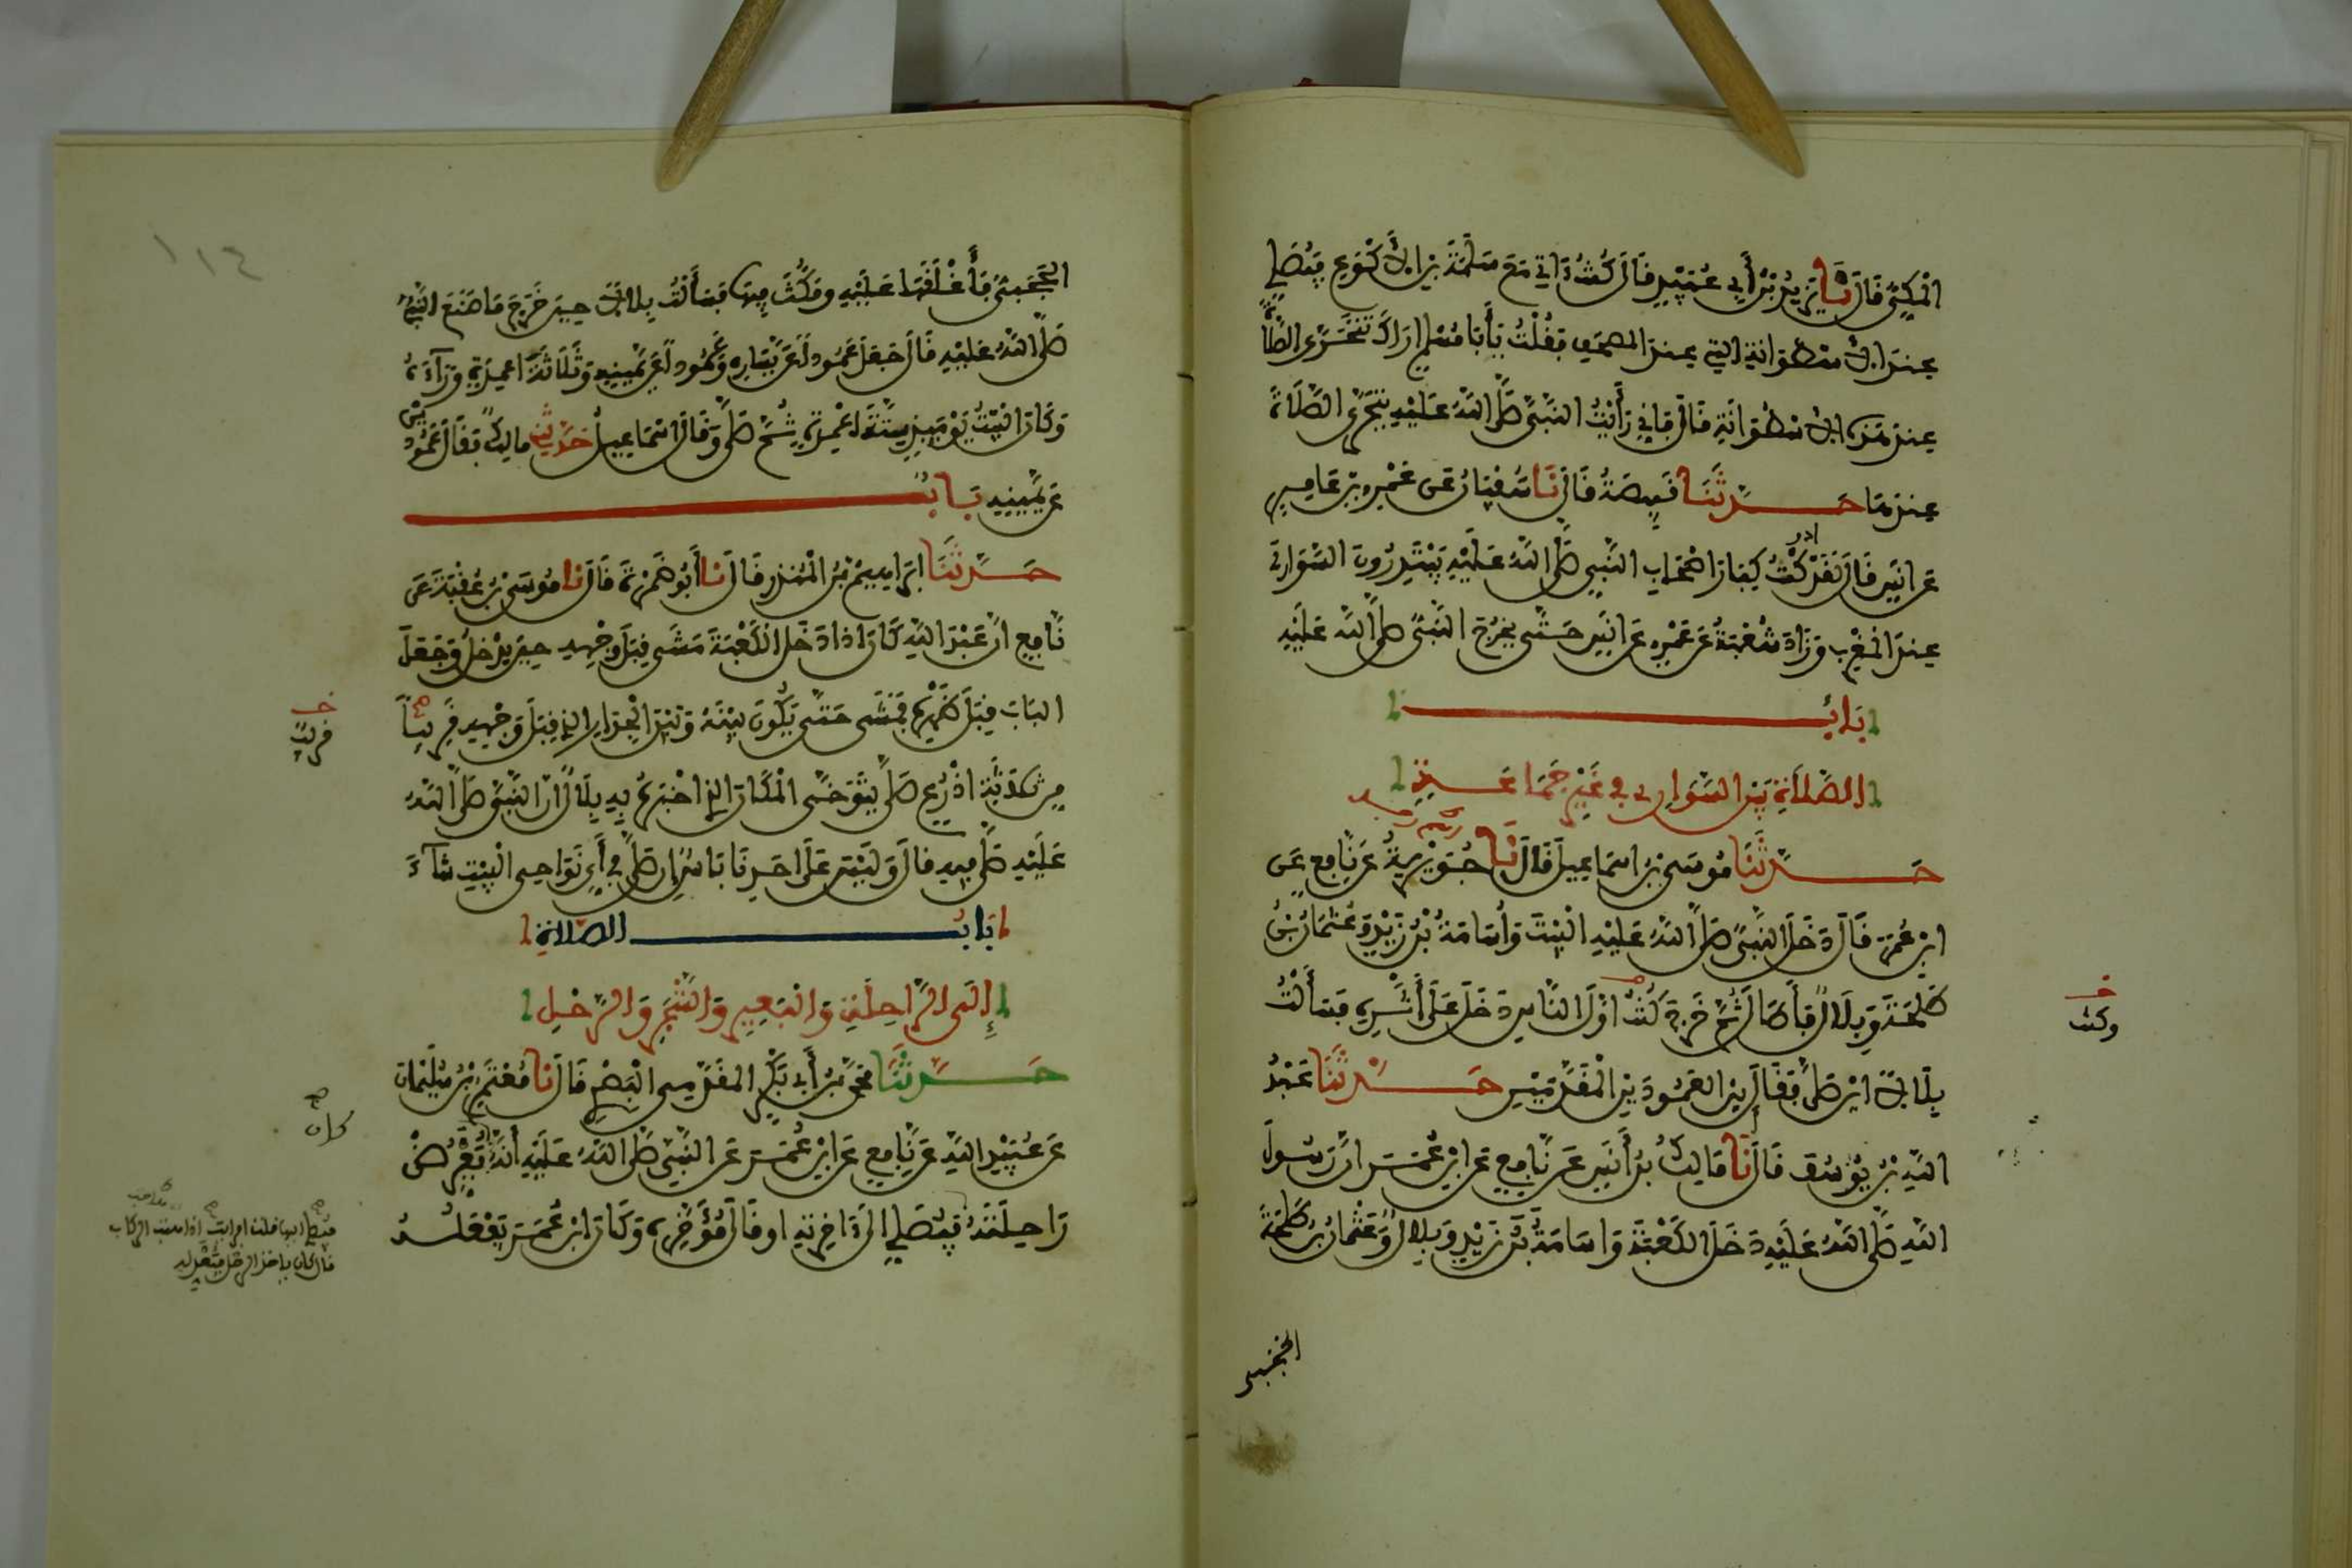 المكي قال نا يزيد بن أبي عبيد قال كنت ءاتي مع سلمة بن الأكوع فيصلي
عند الاسطوانة التي عند المصحف فقلت يأبا مسلم أراك تتحرى الصلاة
عند هذه الاسطوانة قال فإني رأيت النبي صلى الله عليه يتحرى الصلاة
عندها حدثنا قبيصة قال نا سفيان عن عمرو بن عامر
عن أنس قال لقد أدركت كبار أصحاب النبي صلى الله عليه يبتدرون السواري
عند المغرب وزاد شعبة عن عمرو عن أنس حتى يخرج النبي صلى الله عليه
باب
الصلاة بين السواري في غير جماعة
حدثنا موسى بن اسماعيل قال نا جويرية عن نافع عن
ابن عمر قال دخل النبي صلى الله عليه البيت وأسامة بن زيد وعثمان بن
طلحة وبلال فأطال ثم خرج كنت أول الناس دخل على أثره فسألت
وكنت
بلالا اين صلى فقال بين العمودين المقدمين حدثنا عبد
الله بن يوسف قال نا مالك بن أنس عن نافع عن ابن عمر ان رسول
الله صلى الله عليه دخل الكعبة واسامة بن زيد وبلال وعثمان بن طلحة
الحجبي
١١٤
الحجبي فأغلقها عليه ومكث فيها فسألت بلالا حين خرج ما صنع النبي
صلى الله عليه قال جعل عمودا عن يساره وعمودا عن يمينه وثلاثة اعمدة وراءه
وكان البيت يومئذ على ستة اعمدة ثم صلى وقال اسماعيل حدثني مالك فقال عمودين
عن يمينه باب
حدثنا ابراهيم بن المنذر قال نا أبو ضمرة قال نا موسى بن عقبة عن
نافع ان عبد الله كان اذا دخل الكعبة مشى قبل وجهه حين يدخل وجعل
الباب قبل ظهره فمشى حتى يكون بينه وبين الجدار الذي قبل وجهه قريبا
قريب
من ثلاثة اذرع صلى يتوخى المكان الذي اخبره به بلال ان النبي صلى الله
عليه صلى فيه قال وليس على احدنا باس ان صلى في أي نواحي البيت شاء
باب الصلاة
إلى الراحلة والبعير والشجر والرحل
حدثنا محمد بن أبي بكر المقدمي البصري قال نا معتمر بن سليمان
عن عبيد الله عن نافع عن ابن عمر عن النبي صلى الله عليه أنه كان يعرض
كان
راحلته فيصلي إليها
فيصلي اليها قلت افرايت اذا هبت الركاب
قال كان ياخذ الرحل فيعدله
فيصلي الى ءاخرته او قال مؤخره وكان ابن عمر يفعله